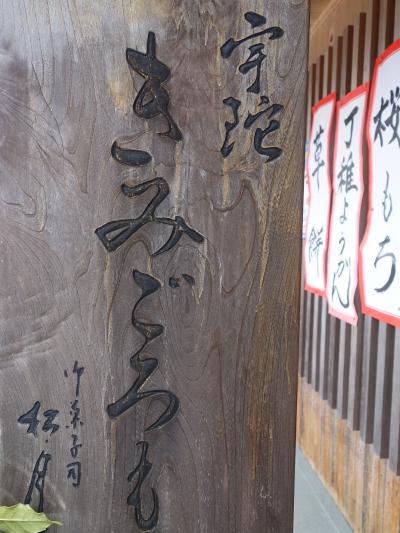 宇陀
きみごろも
御菓子司
松月
桜もち
丁稚ようかん
草餅